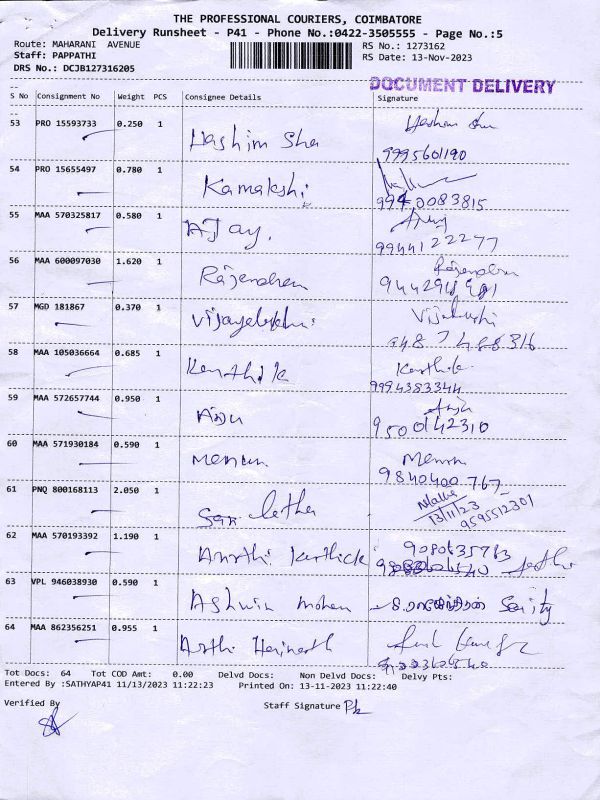 THE PROFESSIONAL COURIERS, COIMBATORE
Delivery Runsheet - P41 - Phone No.:0422-3505555 - Page No.:5
Route: MAHARANI AVENUE RS No.: 1273162
Staff: PAPPATHI RS Date: 13-Nov-2023
DRS No.: DCJB127316205
DOCUMENT DELIVERY
S No Consignment No Weight PCS Consignee Details Signature
53 PRO 15593733 0.250 1 Hashim Sha
9995601190
54 PRO 15655497 0.780 1 Kamakshi
9940083815
55 MAA 570325817 0.580 1 AJay.
9944122277
56 MAA 600097030 1.620 1 Rajendren Rajendren
57 MGD 181867 0.370 1
9487488316
58 MAA 105036664 0.685 1 Karthik Karthik
9994383344
59 MAA 572657744 0.950 1
9500142310
60 MAA 571930184 0.590 1
9840400767
61 PNQ 800168113 2.050 1 Latha
13/11/23 9595512301
62 MAA 570193392 1.190 1 Karthick
63 VPL 946038930 0.590 1 Ashwin Mohan
64 MAA 862356251 0.955 1
Tot Docs: 64 Tot COD Amt: 0.00 Delvd Docs: Non Delvd Docs: Delvy Pts:
Entered By :SATHYAP41 11/13/2023 11:22:23 Printed On: 13-11-2023 11:22:40
Verified By Staff Signature